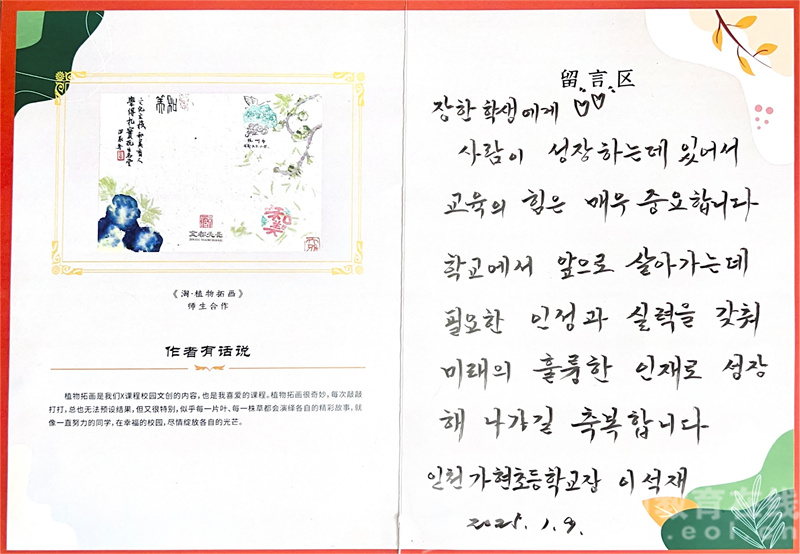 《湘·植物拓画》
师生合作
作者有话说
植物拓画是我们X课程校园文创的内容，也是我喜爱的课程。植物拓画很奇妙，每次敲敲
打打，总也无法预设结果，但又很特别，似乎每一片叶、每一株草都会演绎各自的精彩故事，就
像一直努力的同学，在幸福的校园，尽情绽放各自的光芒。
留言区
장한 학생에게
사람이 성장하는데 있어서
교육의 힘은 매우 중요합니다
학교에서 앞으로 살아가는데
필요한 인성과 실력을 갖춰
미래의 훌륭한 인재로 성장
해 나가길 축복합니다
인천 가현초등학교장 이석재
2025. 1. 9.
教育在线
eol.cn